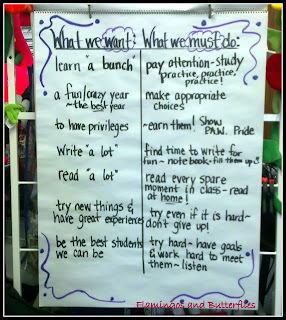 What we want: What we must do:
learn "a bunch" pay attention - study
practice, practice,
practice!
a fun/crazy year make appropriate
~ the best year choices
to have privileges ~earn them! Show
P.A.W. Pride
write "a lot" find time to write for
fun ~ note book - fill them up
read "a lot" read every spare
moment in class - read
at home!
try new things & try even if it is hard -
have great experiences don't give up!
be the best students try hard - have goals
we can be & work hard to meet
them - listen
Flamingos and Butterflies